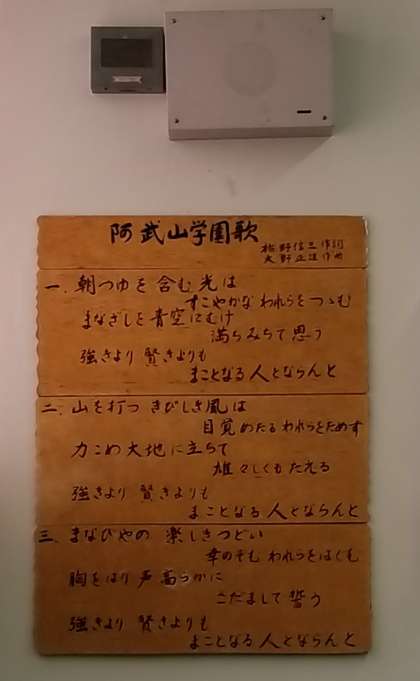 阿武山学園歌
野信三作詞
大野正雄作曲
一、朝つゆを含む光は
すこやかな われらをつゝむ
まなざしを青空にむけ
満ちみちて思う
強きより 賢きよりも
まことなる人とならんと
二、山を打つ きびしき風は
目覚めたる われらをためす
力こめ大地に立ちて
雄々しくもたえる
強きより 賢きよりも
まことなる人とならんと
三、まなびやの 楽しきつどい
幸のぞむ われらをはぐくむ
胸をはり 声高らかに
こだまして誓う
強きより 賢きよりも
まことなる人とならんと